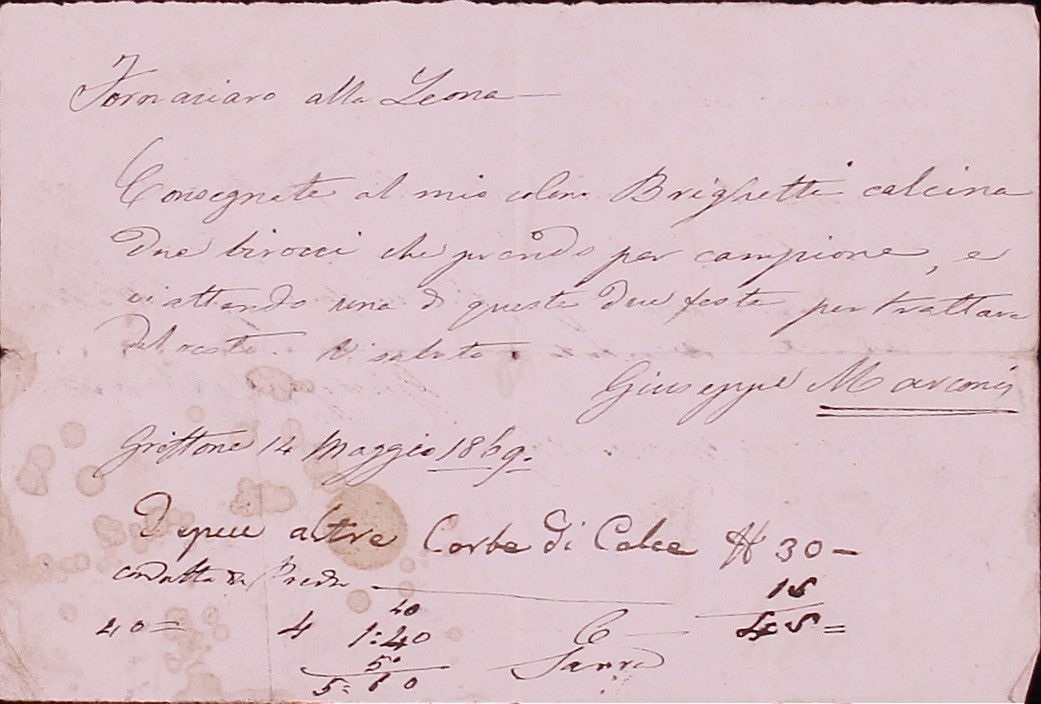 Fornaciaro alla Leona
Consegnate al mio colono Brighetti calcina
Due birocci che prendo per campione, e
vi attendo una di queste due feste per trattare
del resto. Vi saluto
Giuseppe Marconi
Griffone 14 Maggio 1869.
E epiu altre Corbe di Calce N 30 =
condotta da
18
40
40 = 4 1:40
48 =
5
5=60